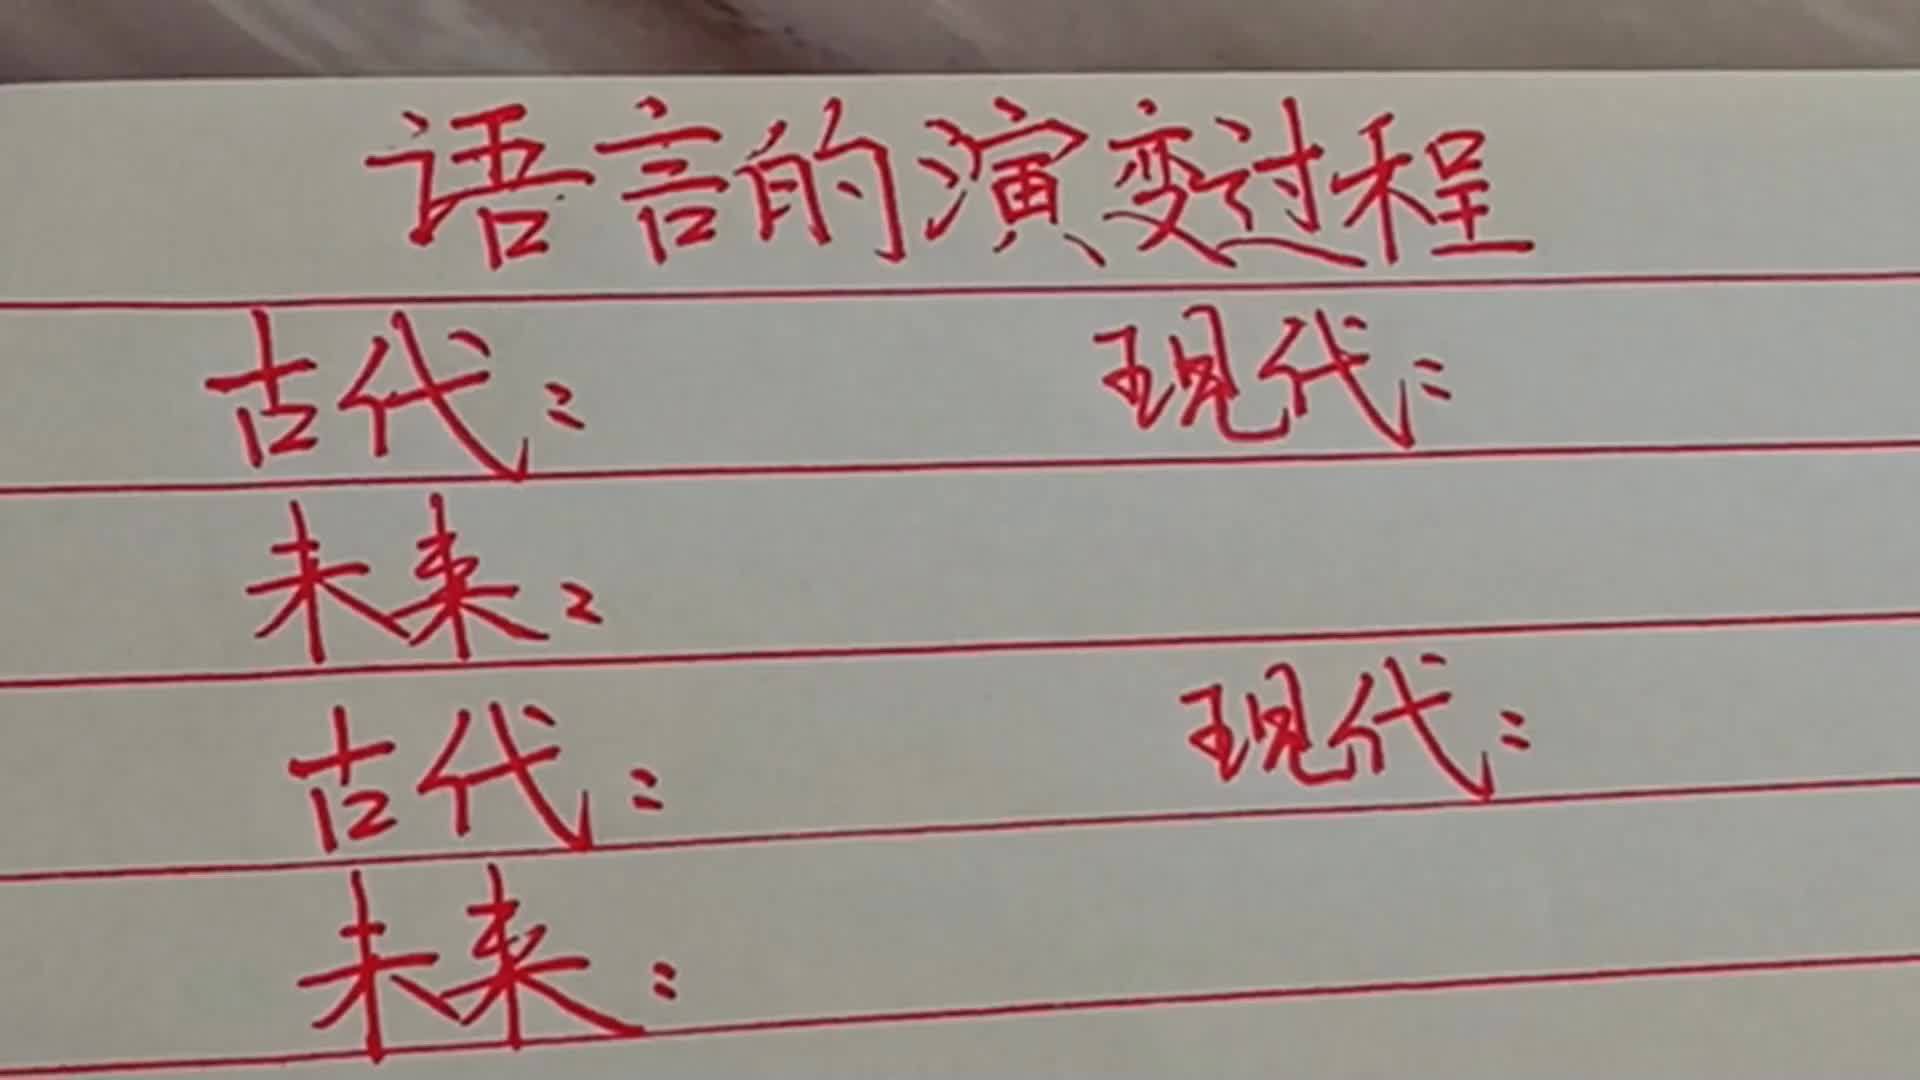 语言的演变过程
古代： 现代：
未来：
古代： 现代：
未来：